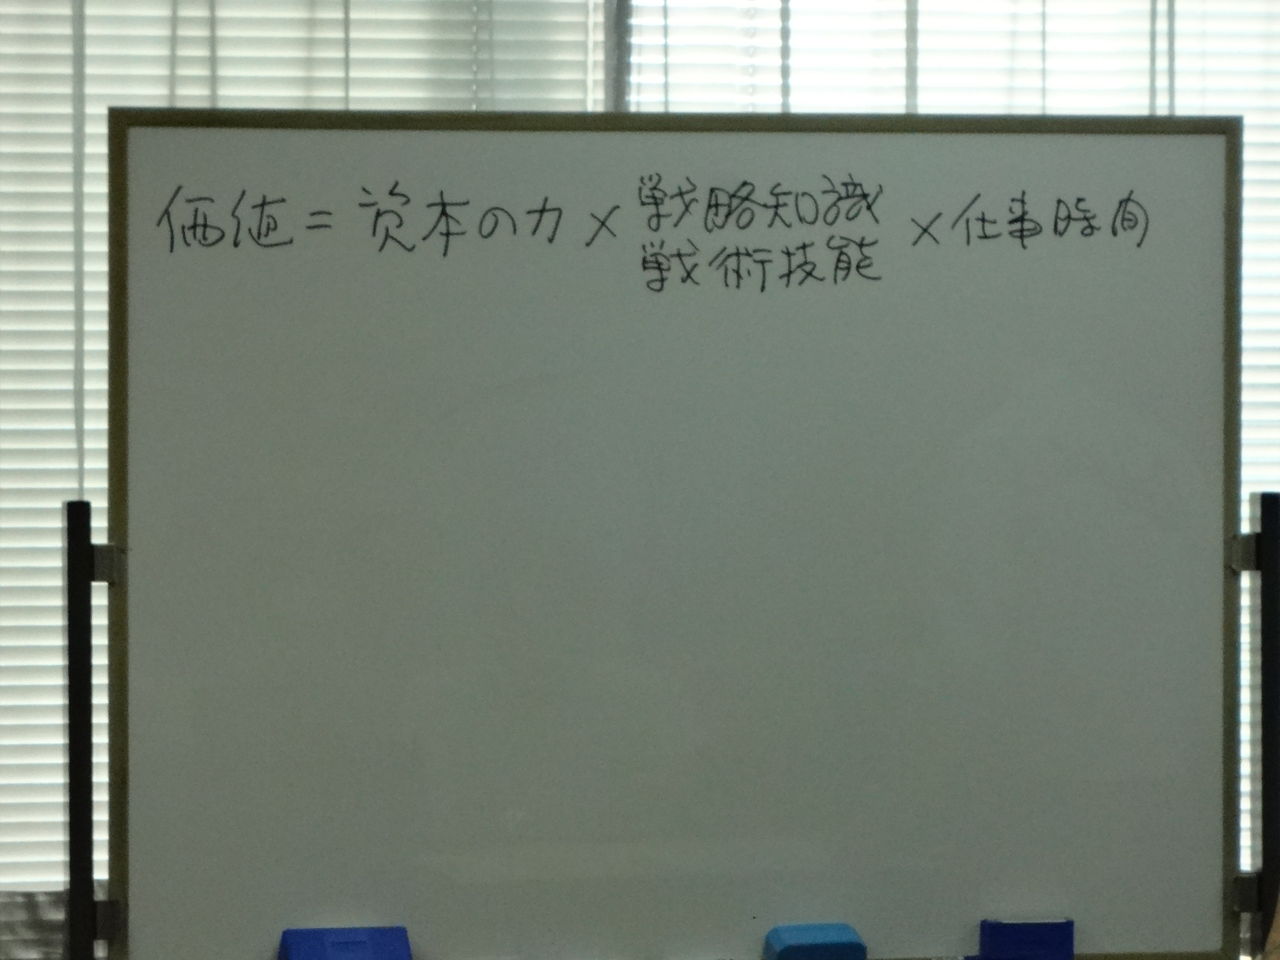 価値=資本の力×戦略知識×仕事時間
戦術技能